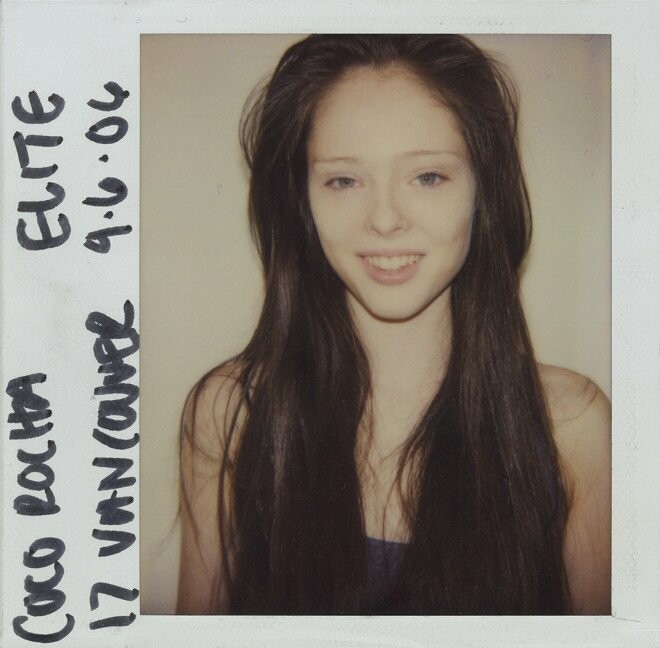 COCO ROCHA ELITE
17 VANCOUVER 9.6.06